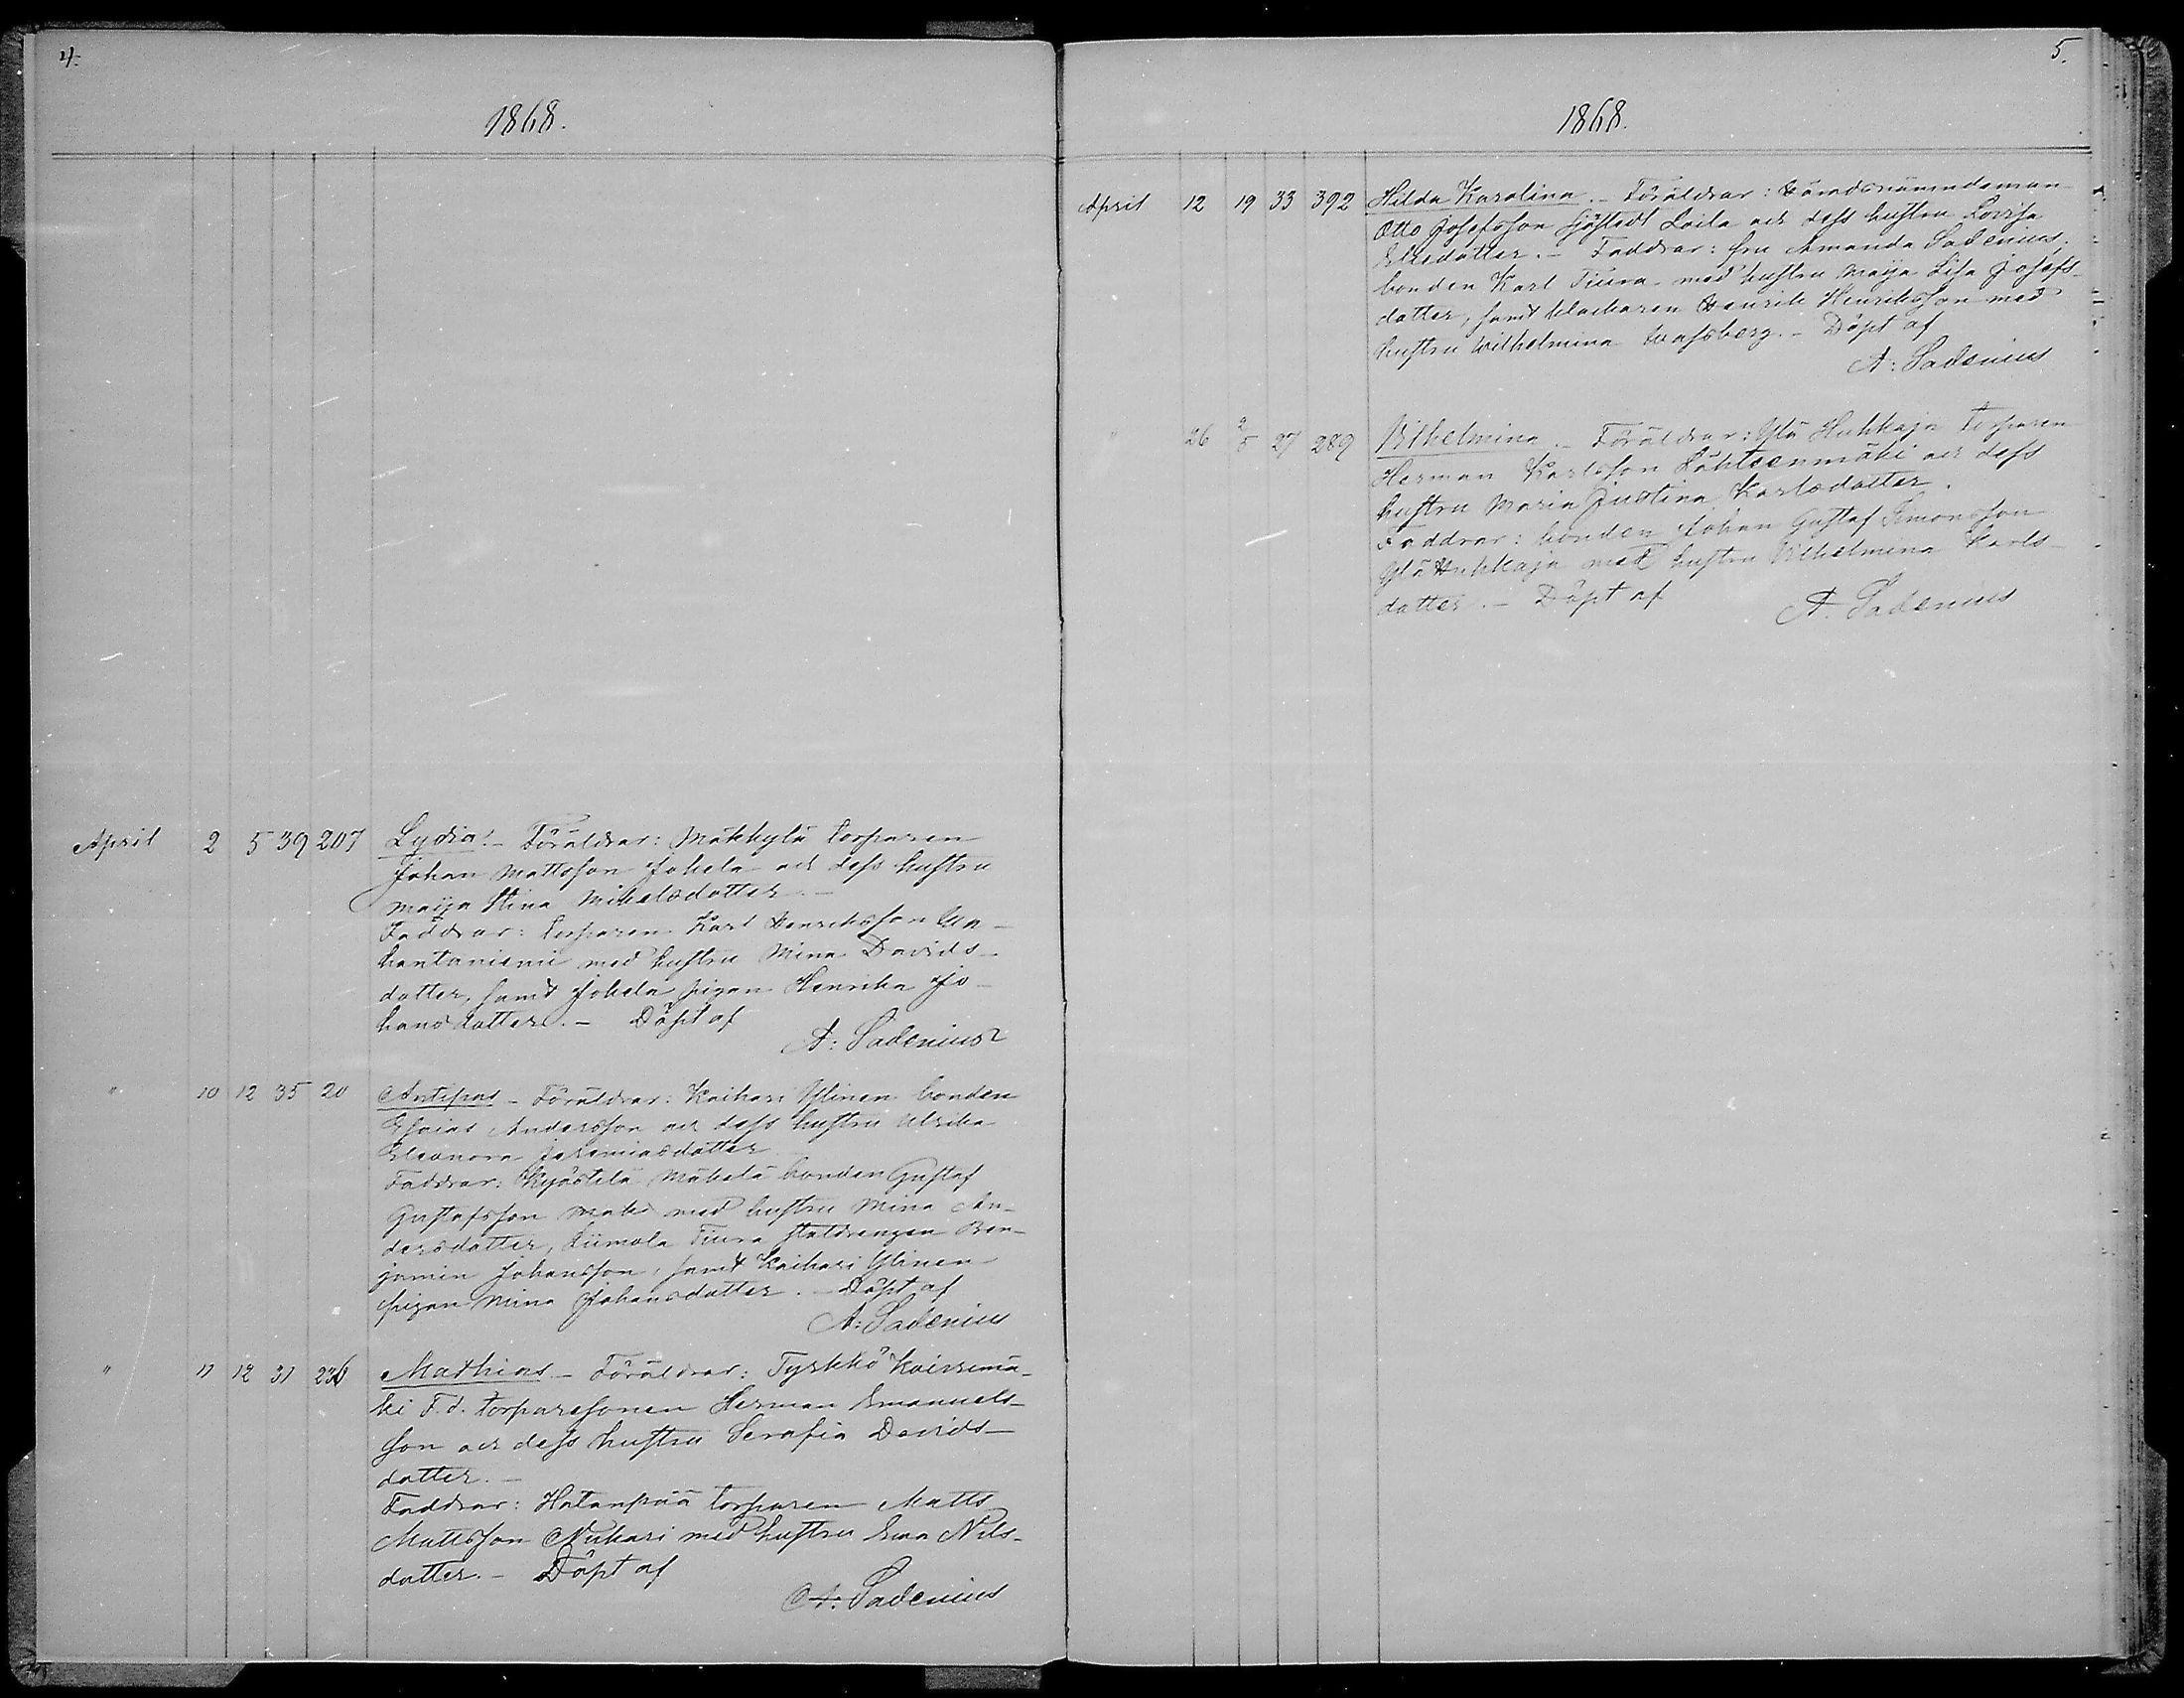 4.
1868.
April 2 5 39 207 Lydia. - Föräldrar: Mäkkylä torparen
Johan Mattsson Jokela och dess hustru
Maija Stina Mikelsdotter. -
Faddrar: torparen Karl Henriksson
med hustru Mina Davids-
dotter, samt Jokela pigan Henrika Jo-
hansdotter. - Döpt af
A: Sadenius
" 10 12 35 20 Antipas - Föräldrar: Kaihari Ylinen bonden
Esaias Andersson och dess hustru Ulrika
Eleonora Jeremiasdotter
Faddrar: Kyöstilä Mäkelä bonden Gustaf
Gustafsson med hustru Mina An-
dersdotter, Liimola Tiura Ben-
jamin Johansson, samt Kaihari Ylinen
pigan Mina Johansdotter. - Döpt af
A: Sadenius
" 11 12 31 236 Mathias - Föräldrar: Tyrkkö Koivumä-
ki F.d. torparesonen Herman Emanuels-
son och dess hustru Serafia Davids-
dotter. -
Faddrar: Hatanpää torparen Matts
Mattsson Nukari med hustru Eva Nils-
dotter. - Döpt af
A: Sadenius
5.
1868.
April 12 19 33 392 Hilda Karolina. - Föräldrar:
Otto Josefsson Sjöstedt Laila och dess hustru Lovisa
Eliedotter. - Faddrar: fru Amanda Sadenius,
bonden Karl Tiura med hustru Maija Lisa Josefs-
dotter, samt klockaren Henrik Henriksson med
hustru Wilhelmina. - Döpt af
A: Sadenius
" 26 2/5 27 289 Vilhelmina. - Föräldrar: Ylä Huhkaja torparen
Herman Karlsson Lähteenmäki och dess
hustru Maria Justina Karlsdotter.
Faddrar: bonden Johan Gustaf Simonsson
Ylä Huhkaja med hustru Vilhelmina Karls-
dotter. - Döpt af
A. Sadenius